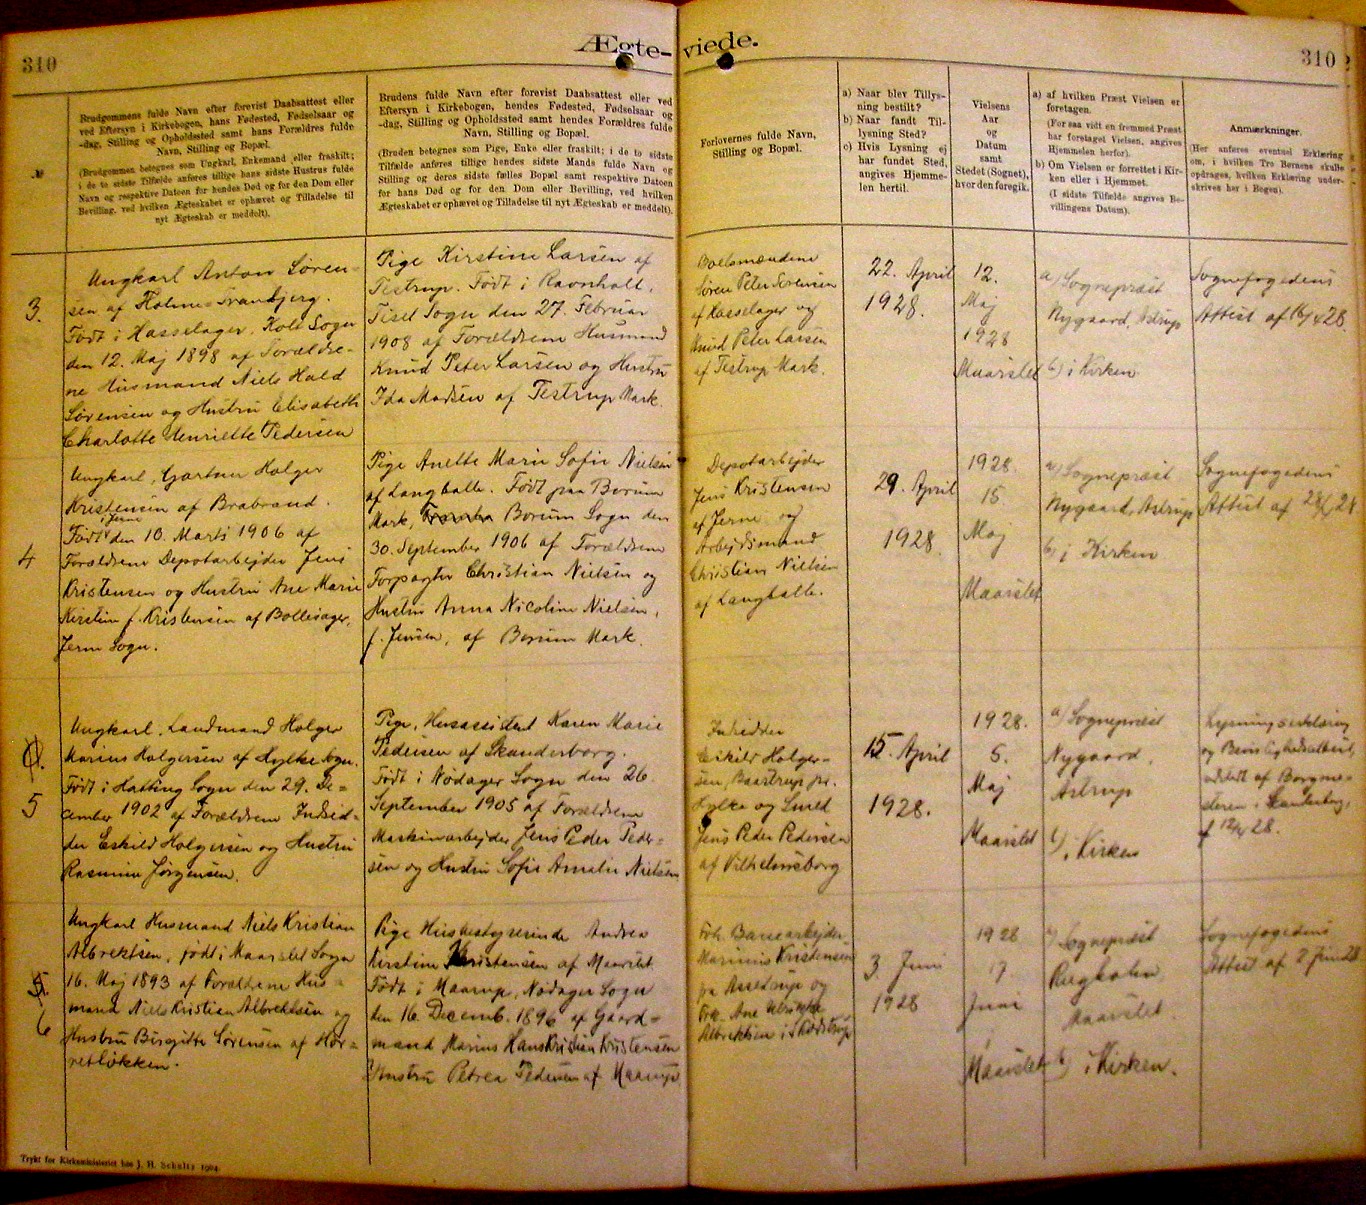 310
Ægte-
viede.
310
№
Brudgommens fulde Navn efter forevist Daabsattest eller
ved Eftersyn i Kirkebogen, hans Fødested, Fødselsaar og
-dag, Stilling og Opholdssted samt hans Forældres fulde
Navn, Stilling og Bopæl.
(Brudgommen betegnes som Ungkarl, Enkemand eller fraskilt;
i de to sidste Tilfælde anføres tillige hans sidste Hustrus fulde
Navn og respektive Datoen for hendes Død og for den Dom eller
Bevilling, ved hvilken Ægteskabet er ophævet og Tilladelse til
nyt Ægteskab er meddelt).
Brudens fulde Navn efter forevist Daabsattest eller ved
Eftersyn i Kirkebogen, hendes Fødested, Fødselsaar og
-dag, Stilling og Opholdssted samt hendes Forældres fulde
Navn, Stilling og Bopæl.
(Bruden betegnes som Pige, Enke eller fraskilt; i de to sidste
Tilfælde anføres tillige hendes sidste Mands fulde Navn og
Stilling og deres sidste fælles Bopæl samt respektive Datoen
for hans Død og for den Dom eller Bevilling, ved hvilken
Ægteskabet er ophævet og Tilladelse til nyt Ægteskab er meddelt).
Forlovernes fulde Navn,
Stilling og Bopæl.
a) Naar blev Tillys-
ning bestilt?
b) Naar fandt Til-
lysning Sted?
c) Hvis Lysning ej
har fundet Sted,
angives Hjemme-
len hertil.
Vielsens
Aar
og
Datum
samt
Stedet (Sognet),
hvor den foregik.
a) af hvilken Præst Vielsen er
foretagen.
(For saa vidt en fremmed Præst
har foretaget Vielsen, angives
Hjemmelen herfor).
b) Om Vielsen er forrettet i Kir-
ken eller i Hjemmet.
(I sidste Tilfælde angives Be-
villingens Datum).
Anmærkninger.
(Her anføres eventuel Erklæring
om, i hvilken Tro Børnene skulle
opdrages, hvilken Erklæring under-
skrives her i Bogen).
3.
Ungkarl Anton Søren-
sen af Holme-Tranbjerg.
Født i Hasselager, Kolt Sogn
den 12. Maj 1898 af Forældre-
ne Husmand Niels Hald
Sørensen og Hustru Elisabeth
Charlotte Henriette Pedersen
Pige Kirstine Larsen af
Testrup. Født i Ravnholt,
Tiset Sogn den 27. Februar
1908 af Forældrene Husmand
Knud Peter Larsen og Hustru
Ida Madsen af Testrup Mark.
Boelsmændene
Søren Peter Sørensen
af Hasselager og
Knud Peter Larsen
af Testrup Mark.
22. April
1928.
12.
Maj
1928
Maarslet
a) Sognepræst
Nygaard, Astrup
b) i Kirken
Sognefogedens
Attest af 16/4 28.
4
Ungkarl, Gartner Holger
Kristensen af Brabrand.
i Jerne
Født den 10. Marts 1906 af
Forældrene Depotarbejder Jens
Kristensen og Hustru Ane Marie
Kirstine f. Kristensen af Bollesager,
Jerne Sogn.
Pige Anette Marie Sofie Nielsen
af Langballe. Født paa Borum
Mark, Borum Sogn den
30. September 1906 af Forældrene
Forpagter Christian Nielsen og
Hustru Anna Nicoline Nielsen,
f. Jensen, af Borum Mark.
Depotarbejder
Jens Kristensen
af Jerne og
Arbejdsmand
Christian Nielsen
af Langballe.
29. April
1928
1928.
15
Maj
Maarslet
a) Sognepræst
Nygaard, Astrup
b) i Kirken
Sognefogedens
Attest af 28.
5
Ungkarl, Landmand Holger
Marius Holgersen af Hylke Sogn.
Født i Hatting Sogn den 29. De-
cember 1902 af Forældrene Indsid-
der Eskild Holgersen og Hustru
Rasmine Jørgensen.
Pige, Husassistent Karen Marie
Pedersen af Skanderborg.
Født i Nødager Sogn den 26
September 1905 af Forældrene
Maskinarbejder Jens Peder Peder-
sen og Hustru Sofie Amalie Nielsen
Indsidder
Eskild Holger-
sen, Baastrup pr.
Hylke og Smed
Jens Peder Pedersen
af Vilhelmsborg
15. April
1928.
1928.
5.
Maj
Maarslet
a) Sognepræst
Nygaard,
Astrup
b) i Kirken
Lysningserklæring
og Berettighedsattest,
udstedt af Borgme-
steren i Skanderborg,
af 12/4 28.
6
Ungkarl Husmand Niels Kristian
Albrektsen, født i Maarslet Sogn
16. Maj 1893 af Forældrene Hus-
mand Niels Kristian Albrektsen og
Hustru Birgitte Sørensen af Hør-
retløkken.
Pige Husbestyrerinde Andrea
Kirstine Kristensen af Maarslet
Født i Maarup, Nødager Sogn
den 16. Decemb. 1896 af Gaard-
mand Marius Hans Kristian Kristensen
Hustru Petrea Pedersen af Maarup
Fhv. Banearbejder
Marinus Kristensen
pr Assedrup og
Frk. Ane Ulrikke
Albrektsen i Skødstrup
3. Juni
1928
1928
17
Juni
Maarslet
a) Sognepræst
Bugholm
Maarslet.
b) i Kirken.
Sognefogedens
Attest af 2 Juni 28
Trykt for Kirkeministeriet hos J. H. Schultz 1904.